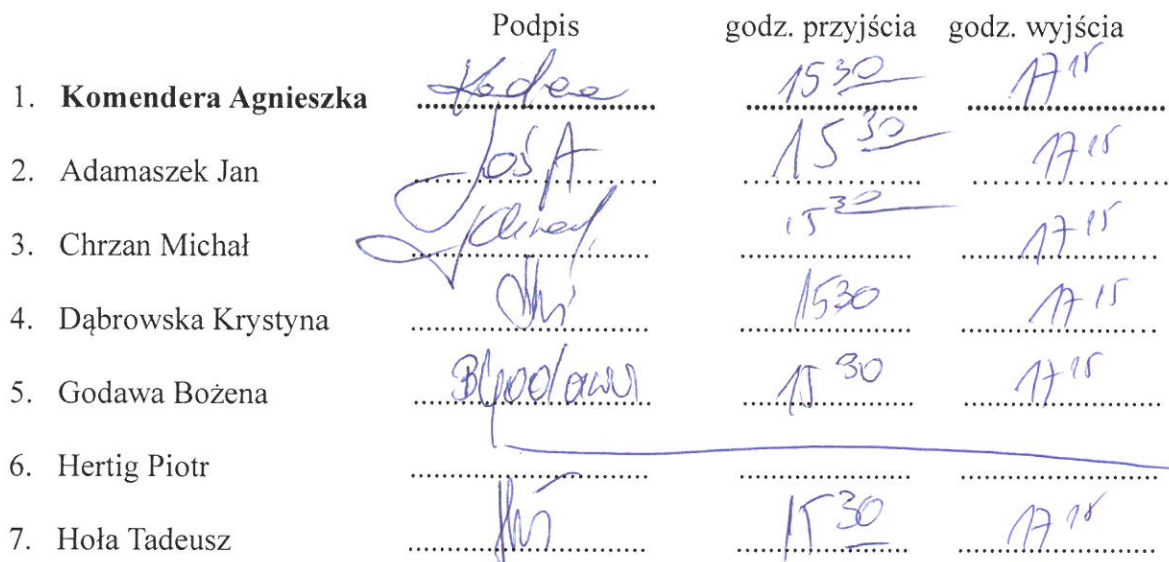 Podpis godz. przyjścia godz. wyjścia
1. Komendera Agnieszka 15 30 17 15
2. Adamaszek Jan 15 30 17 15
3. Chrzan Michał 15 30 17 15
4. Dąbrowska Krystyna 1530 17 15
5. Godawa Bożena 15 30 17 15
6. Hertig Piotr
7. Hoła Tadeusz 15 30 17 15